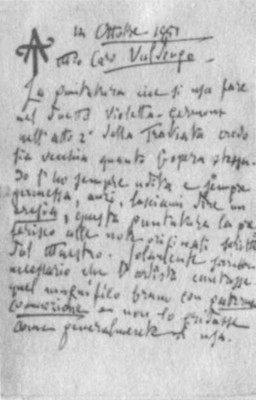 in Ottobre 1951
Caro Valdengo.
La puntatura che si usa fare
nel duetto Violetta-Germont
nell'atto 2º della Traviata credo
sia vecchia quanto l'opera stessa.
Io l'ho sempre udita e sempre
permessa, anzi, lasciami dire un
eresia, questa puntatura la pre
ferisco alle note originali scritte
dal Maestro. Solamente
necessario che l'artista cantasse
quel magnifico brano con paterna
e non lo gridasse
come generalmente si usa.